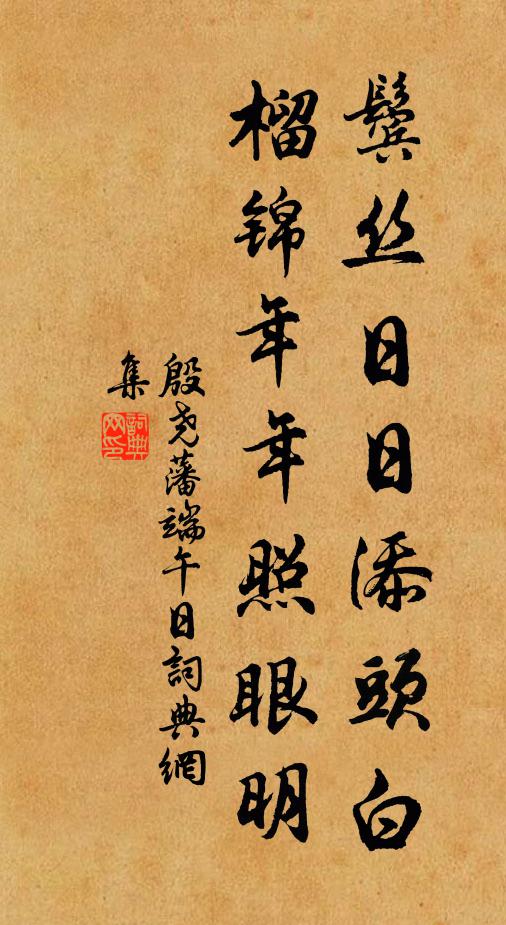 鬓丝日日添頭白
榴锦年年照眼明
殷尧藩端午日詞典網
集
詞典网印